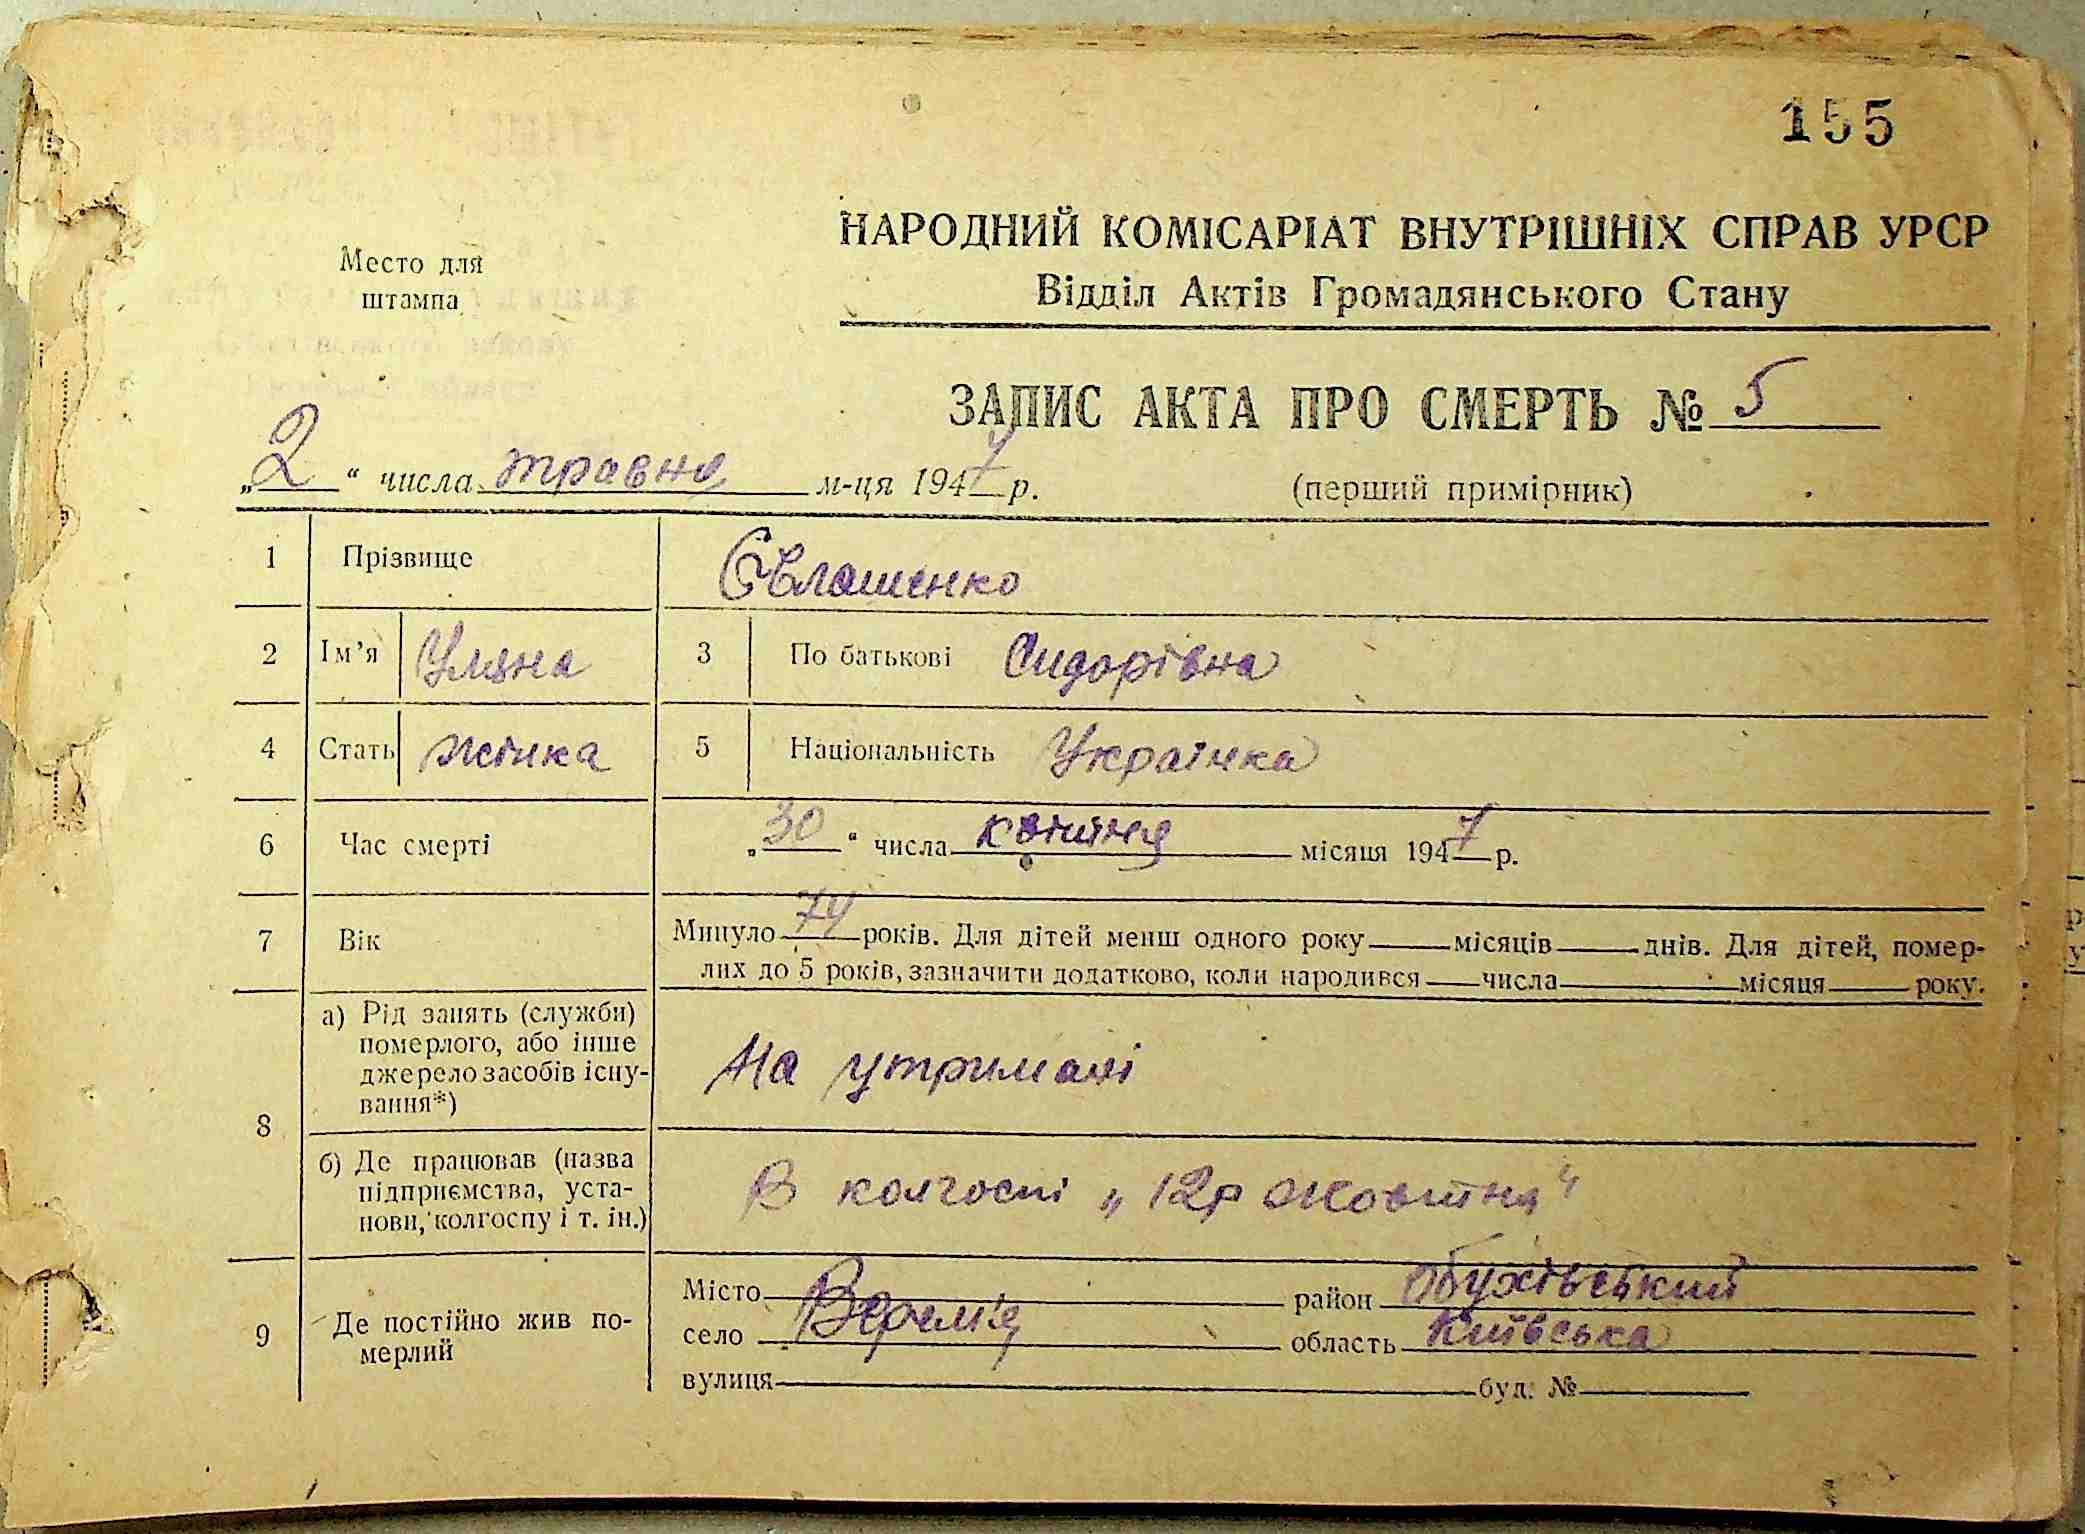 155
Место для
штампа
НАРОДНИЙ КОМІСАРІАТ ВНУТРІШНІХ СПРАВ УРСР
Відділ Актів Громадянського Стану
ЗАПИС АКТА ПРО СМЕРТЬ № 5
„2“ числа травня м-ця 1947 р.
(перший примірник)
1 Прізвище Євлашенко
2 Ім'я Уляна 3 По батькові Сидорівна
4 Стать жінка 5 Національність Українка
6 Час смерті „30“ числа квітня місяця 1947 р.
7 Вік Минуло 74 років. Для дітей менш одного року місяців днів. Для дітей, помер-
лих до 5 років, зазначити додатково, коли народився числа місяця року.
8 а) Рід занять (служби)
померлого, або інше
джерело засобів існу-
вання*)
На утримані
б) Де працював (назва
підприємства, уста-
нови, колгоспу і т. ін.)
В колгоспі „12р жовтня"
9 Де постійно жив по-
мерлий
Місто район Обухівський
село Верем'я область Київська
вулиця буд. №